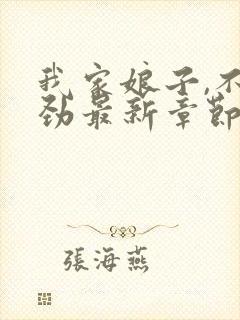 我家娘子,不
劲最新章節
張海燕